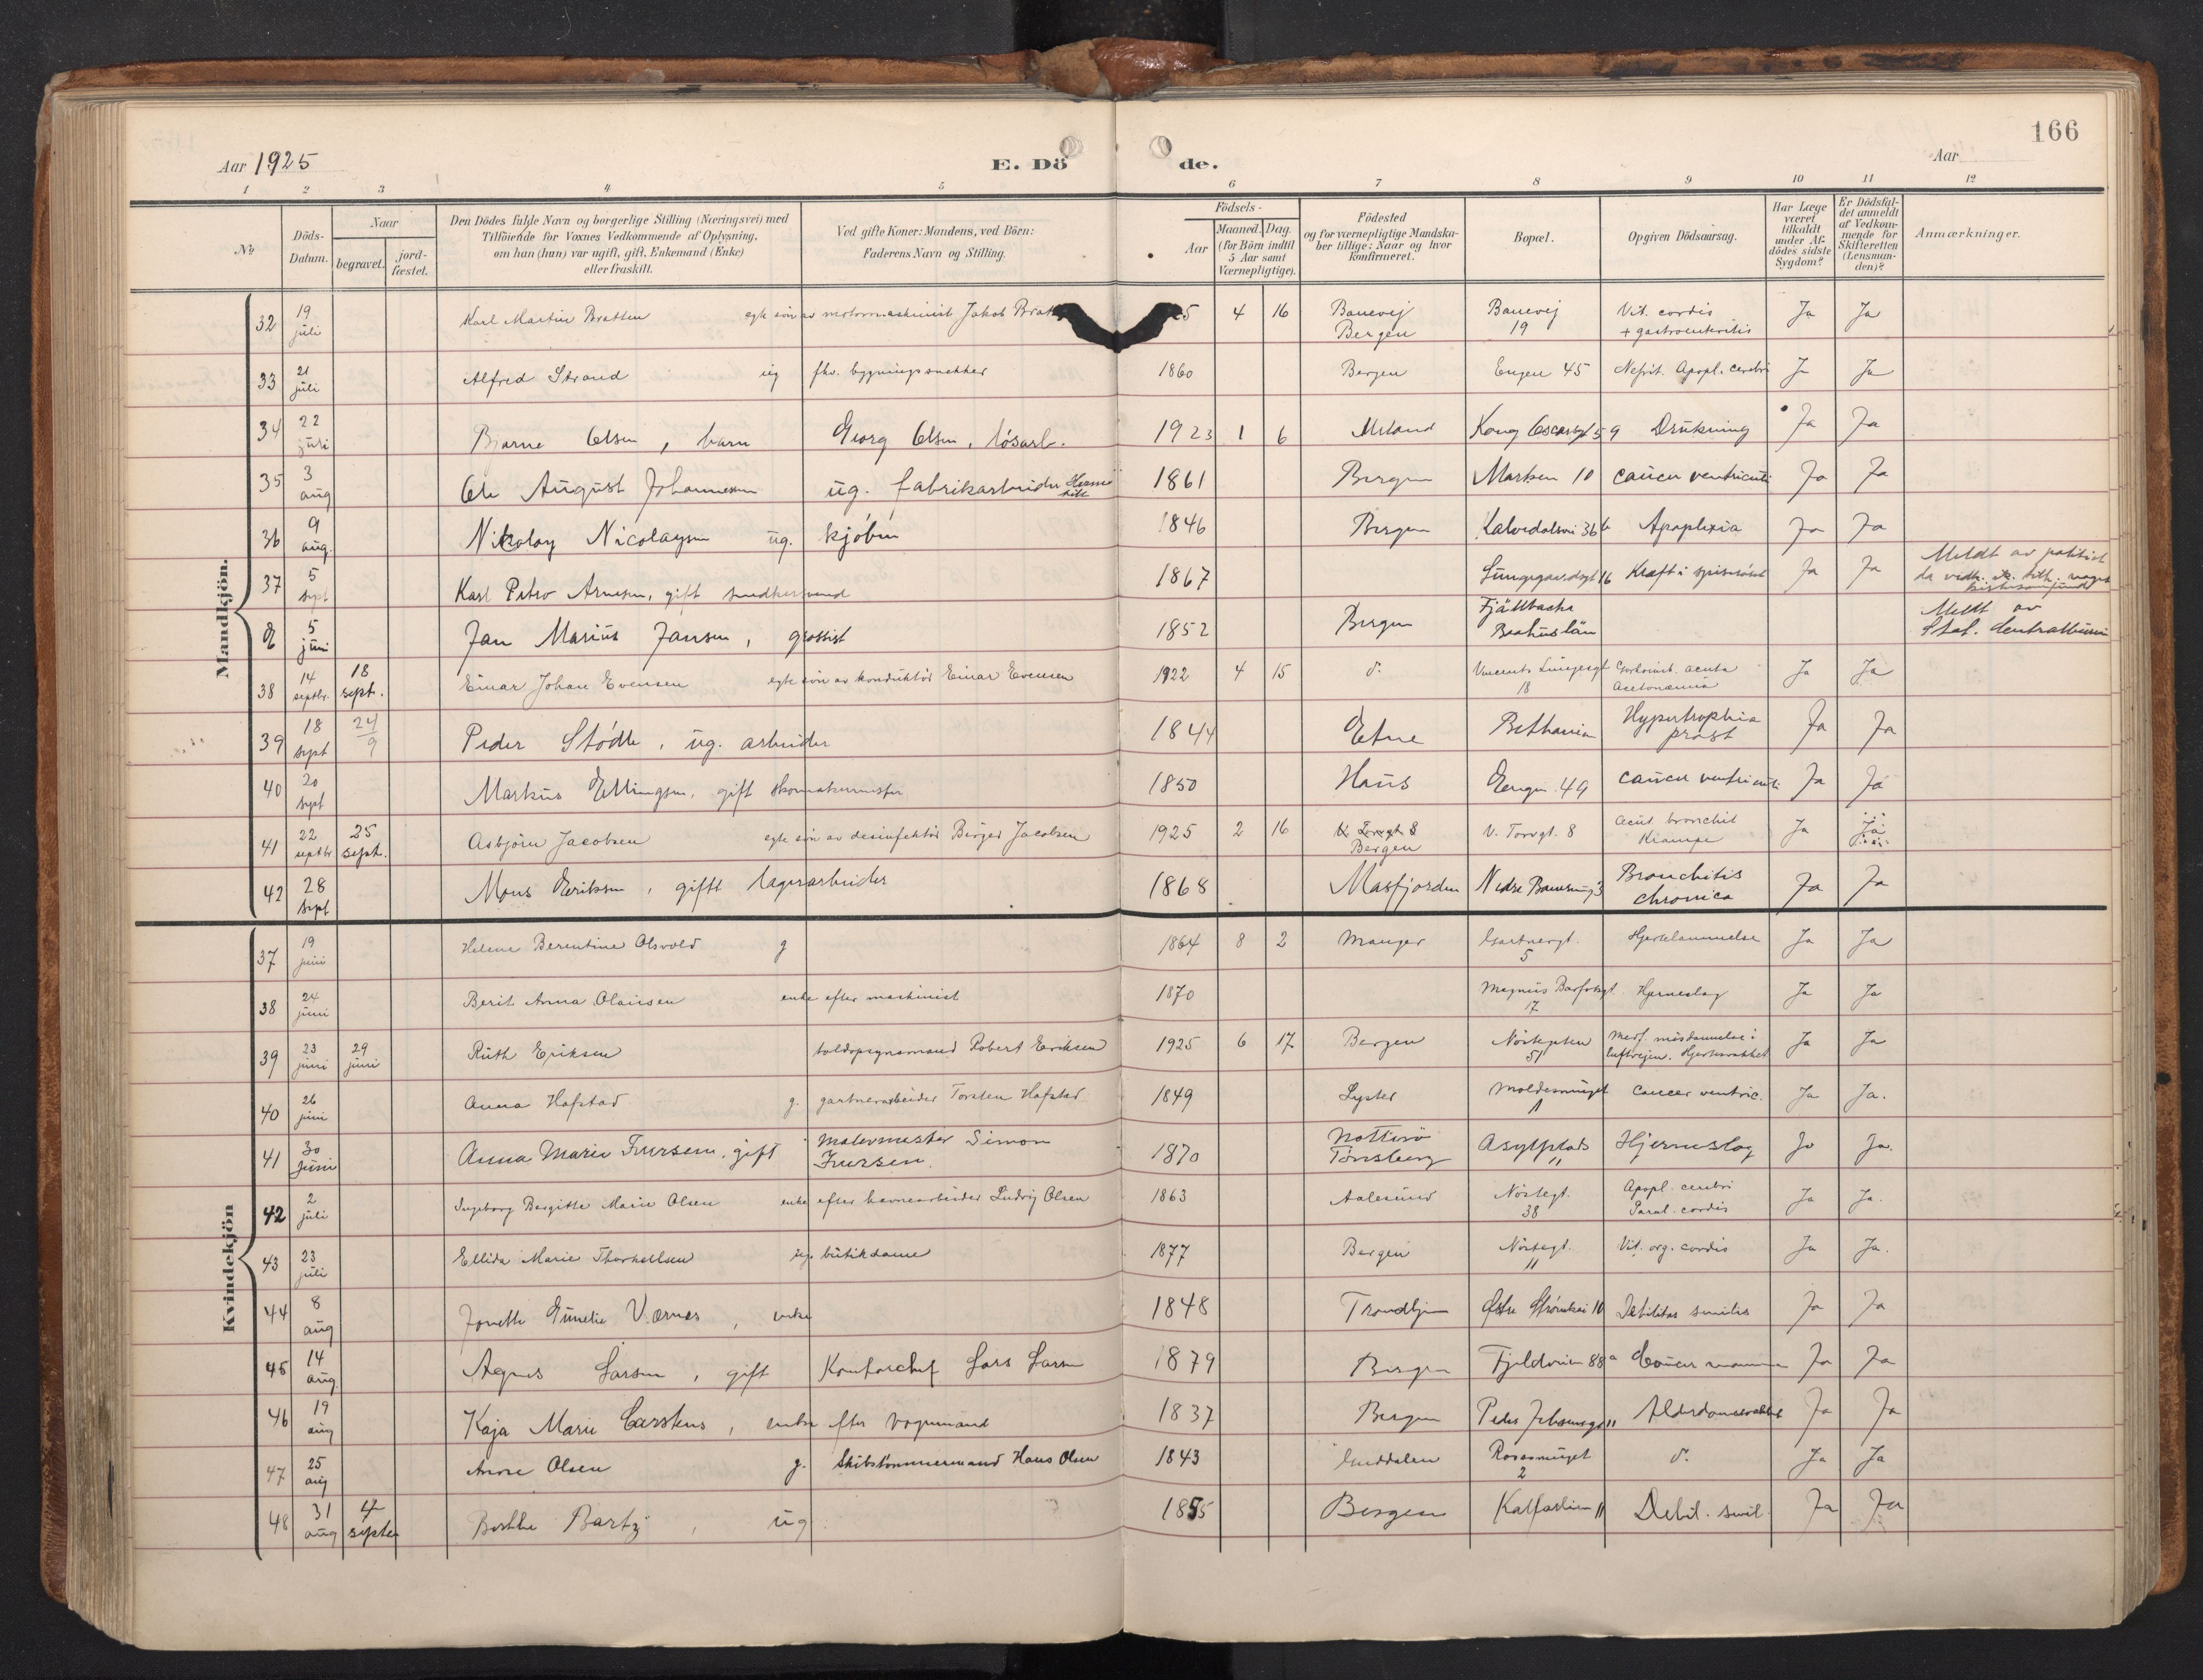 166
Aar 1925
E. Dö de.
Aar
1 2 3 4 5 6 7 8 9 10 11 12
No
Döds-Datum.
Naar
begravet. jord-fæstet.
Den Dödes fulde Navn og borgerlige Stilling (Næringsvei) med
Tilföiende for Voxnes Vedkommende af Oplysning,
om han (hun) var ugift, gift, Enkemand (Enke)
eller fraskilt.
Ved gifte Koner: Mandens, ved Börn:
Faderens Navn og Stilling.
Födsels-
Aar
Maaned. Dag.
(for Börn indtil
5 Aar samt
Værnepligtige).
Födested
og for værnepligtige Mandska-
ber tillige: Naar og hvor
konfirmeret.
Bopæl.
Opgiven Dödsaarsag.
Har Læge
været
tilkaldt
under Af-
dödes sidste
Sygdom?
Er Dödsfal-
det anmeldt
af Vedkom-
mende for
Skifteretten
(Lensman-
den)?
Anmærkninger.
Mandkjön.
32 19 juli Karl Martin Bratten egte søn av motormaskinist Jakob 5 4 16 Banevej Bergen Banevej 19 Vit. cordis + gastroenteritis Ja Ja
33 21 juli Alfred Strand ug fhv. bygningssnekker 1860 Bergen Engen 45 Nefrit. Apopl. cerebri Ja Ja
34 22 juli Bjarne Olsen, barn Georg Olsen, løsarb. 1923 1 6 Meland Kong Oscarsgt 59 Drukning Ja Ja
35 3 aug Ole August Johannesen ug. fabrikarbeider 1861 Bergen Marken 10 cancer ventriculi Ja Ja
36 9 aug. Nikolay Nicolaysen ug. kjøbm 1846 Bergen Kalvedalsvei 36 b Apoplexia Ja Ja
37 5 sept Karl Petro Arnesen, gift snedkersvend 1867 Lungegaardsgt 16 Kræft i spiserøret Ja Ja Meldt av
E 5 juni Jan Marius Jansen, grossist 1852 Bergen Fjällbacka Bohuslän Meldt av Stat. Centralbureau
38 14 septbr. 18 sept. Einar Johan Evensen egte søn av konduktør Einar Evensen 1922 4 15 d. Vincents Lungesgt 18 acuta Acetonæmia Ja Ja
39 18 sept 24/9 Peder Stødle, ug. arbeider 1844 Etne Bethania Hypertrophia prost Ja Ja
40 20 sept Markus Ellingsen, gift skomakermester 1850 Haus Engen 49 cancer ventriculi Ja Ja
41 22 septbr 25 sept. Asbjørn Jacobsen egte søn av desinfektør Birger Jacobsen 1925 2 16 V. Torvgt 8 Bergen V. Torvgt. 8 acut. bronchit Krampe Ja Ja
42 28 sept Mons Eriksen, gift lagerarbeider 1868 Masfjorden Nedre 3 Bronchitis chronica Ja Ja
Kvindekjön
37 19 juni Helene Berentine Alsvold g 1864 8 2 Manger Gartnergt. 5 Hjertelammelse Ja Ja
38 24 juni Berit Anna Olaisen enke efter maskinist 1870 Magnus Barfotsgt 17 Hjerneslag Ja Ja
39 23 juni 29 juni Ruth Eriksen toldopsynsmand Robert Eriksen 1925 6 17 Bergen Nøstegaten 51 Medf. misdannelse i luftvejen. Hjertesvakhet Ja Ja
40 26 juni Anna Hafstad g. gartnerarbeider Torsten Hafstad 1849 Lyster Moldesmuget 1 Cancer ventric. Ja Ja.
41 30 juni Anna Marie Fuursen, gift Malermester Simon Fuursen. 1870 Nøtterø Tønsberg Asylplads 11 Hjerneslag Ja Ja.
42 2 juli Ingeborg Bergitte Marie Olsen enke efter havnearbeider Ludvig Olsen 1863 Aalesund Nøstegt. 38 Apopl. cerebri Paral. cordis Ja Ja.
43 23 juli Ellida Marie Thorkellsen ug. butikdame 1877 Bergen Nøstegt. 11 Vit. org. cordis Ja Ja.
44 8 aug Jonette Emelie Værnes, enke 1848 Trondhjem Østre Strømkai 10 Debilitas senilis Ja Ja
45 14 aug. Agnes Larsen, gift Kontorchef Lars Larsen 1879 Bergen Fjeldveien 88 a Cancer mamma Ja Ja
46 19 aug Kaja Marie Carstens, enke efter vognmand 1837 Bergen Peder Jebsensgt 11 Alderdomssvakhet Ja Ja
47 25 aug Anne Olsen g. Skibstømmermand Hans Olsen 1843 Guddalen Rosesmuget 2 d. Ja Ja
48 31 aug 4 septer Berthe Bartz, ug 1855 Bergen Kalfarlien 11 Debil. senil. Ja Ja